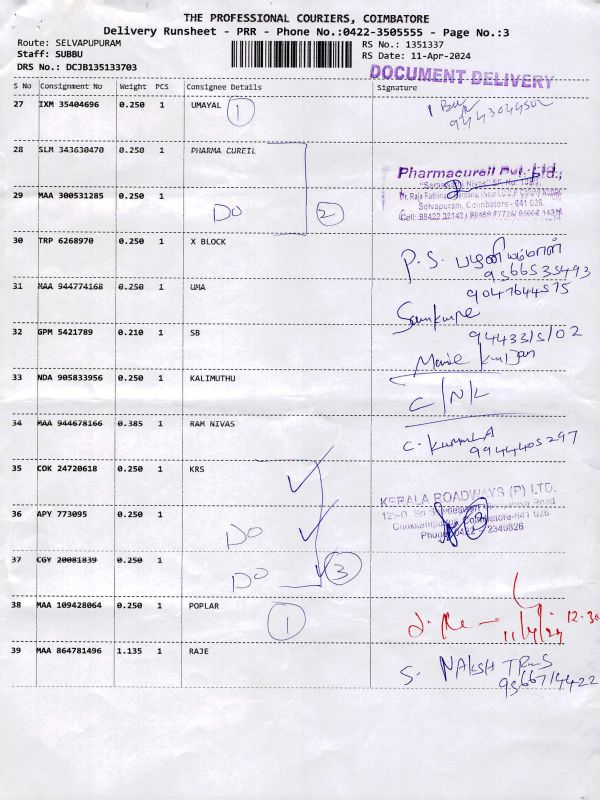 THE PROFESSIONAL COURIERS, COIMBATORE
Delivery Runsheet - PRR - Phone No.:0422-3505555 - Page No.:3
Route: SELVAPUPURAM
RS No.: 1351337
Staff: SUBBU
RS Date: 11-Apr-2024
DRS No.: DCJB135133703
DOCUMENT DELIVERY
S No Consignment No Weight PCS Consignee Details Signature
27 IXM 35404696 0.250 1 UMAYAL 1
28 SLM 343630470 0.250 1 PHARMA CUREIL
Pharmacureil Pvt. Ltd.,
29 MAA 300531285 0.250 1
Do 2
Selvapuram, Coimbatore - 641 026.
30 TRP 6268970 0.250 1 X BLOCK
P.S. பழனியம்மாள்
9566535493
31 MAA 944774168 0.250 1 UMA
9047644575
32 GPM 5421789 0.210 1 SB
94433/5/02
33 NDA 905833956 0.250 1 KALIMUTHU
C/N/L
34 MAA 944678166 0.385 1 RAM NIVAS
9944405297
35 COK 24720618 0.250 1 KRS
KERALA ROADWAYS (P) LTD.
36 APY 773095 0.250 1
Do
37 CGY 20081839 0.250 1
Do 3
38 MAA 109428064 0.250 1 POPLAR 1
11/4/24 12.30
39 MAA 864781496 1.135 1 RAJE
S. NAKSH